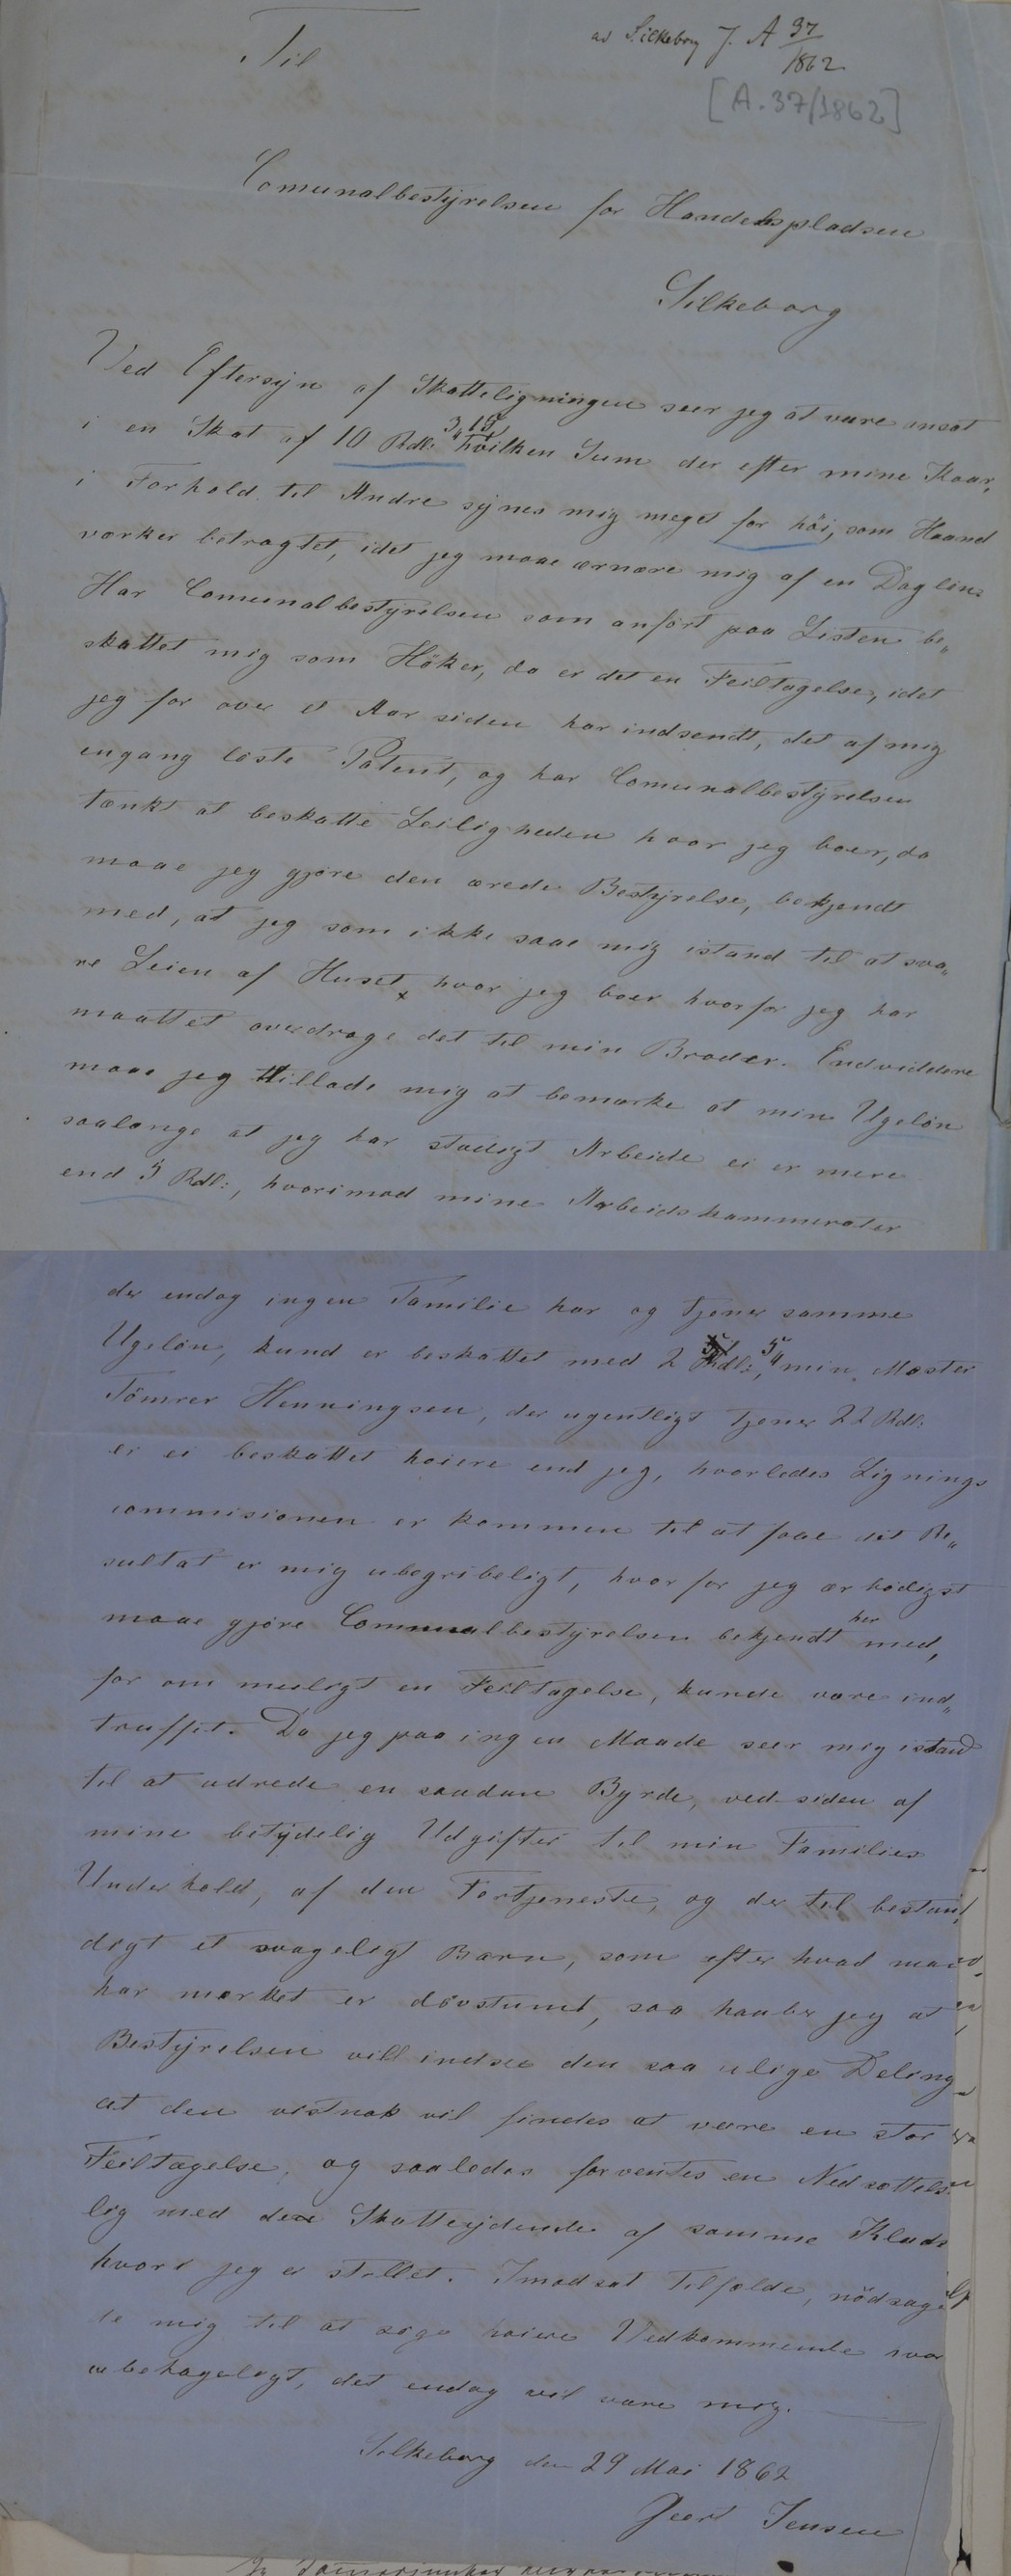 Til
ad Silkeborg J. A 37/1862
[A. 37/1862]
Comunalbestyrelsen for Handelspladsen
Silkeborg
Ved Eftersyn af Skatteligningen seer jeg at være ansat
i en Skat af 10 Rdl: 3 15 hvilken Sum der efter mine Kaar,
i Forhold til Andre synes mig meget for höi, som Haand
værker betragtet, idet jeg maae ærnære mig af en Daglön.
Har Comunalbestyrelsen som anført paa Listen be„
skattet mig som Höker, da er det en Feiltagelse, idet
jeg for over et Aar siden har indsendt, det af mig
engang löste Patent, og har Comunalbestyrelsen
tænkt at beskatte Leiligheden hvor jeg boer, da
maae jeg gjöre den ærede Bestyrelse, bekjendt
med, at jeg som ikke saae mig istand til at sva„
re Leien af Huset hvor jeg boer hvorfor jeg har
maattet overdrage det til min Broder. Endviddere
maae jeg tillade mig at bemærke at min Ugelön
saalænge at jeg har stadigt Arbeide ei er mere
end 5 Rdl:, hvorimod mine Arbeidskammerater
der endog ingen Familie har og tjener samme
Ugelön, kund er beskattet med 2 Rdl:, 5 min Mester
Tömrer Henningsen, der ugentligt tjener 22 Rdl:
er ei beskattet høiere end jeg, hvorledes Lignings
commisionen er kommen til at faae det Re„
sultat er mig ubegribeligt, hvorfor jeg ærbödigst
maae gjöre Communalbestyrelsen bekjendt her med,
for om muligt en Feiltagelse, kunde være ind„
truffet. Da jeg paa ingen Maade seer mig istand
til at udrede en saadan Byrde, ved siden af
mine betydelig Udgifter til min Families
Underhold, af den Fortjeneste, og der til bestan„
digt et svageligt Barn, som efter hvad man
har mærket er døvstumt, saa haaber jeg at
Bestyrelsen vill indsee den saa ulige Deling
at den vistnok vil findes at være en stor
Feiltagelse, og saaledes forventes en Nedsættelse
lig med de Skatteydende af samme Klasse
hvori jeg er stillet. Imodsat Tilfælde, nödsages
te mig til at søge høiere Vedkommende svar
ubehageligt, det endog vil være mig.
Silkeborg den 29 Mai 1862
Geert Jensen